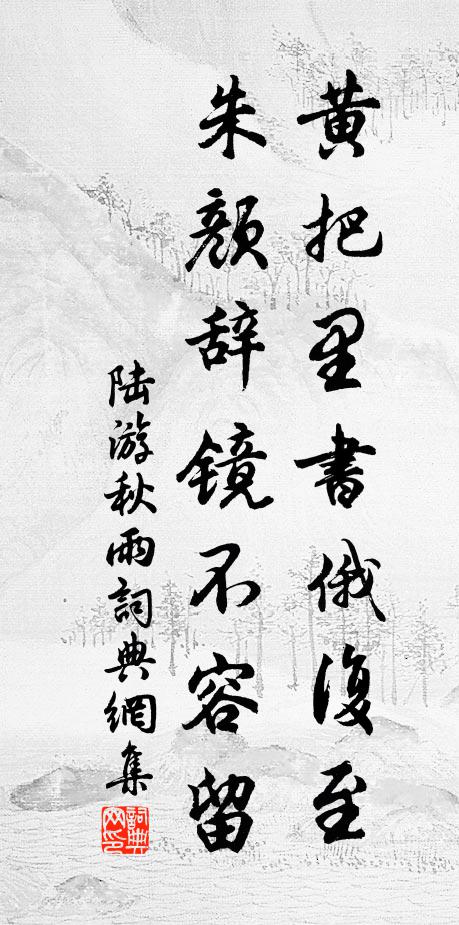 黄把里書俄復至
朱颜辞镜不容留
陆游秋雨詞典網集
詞典网印